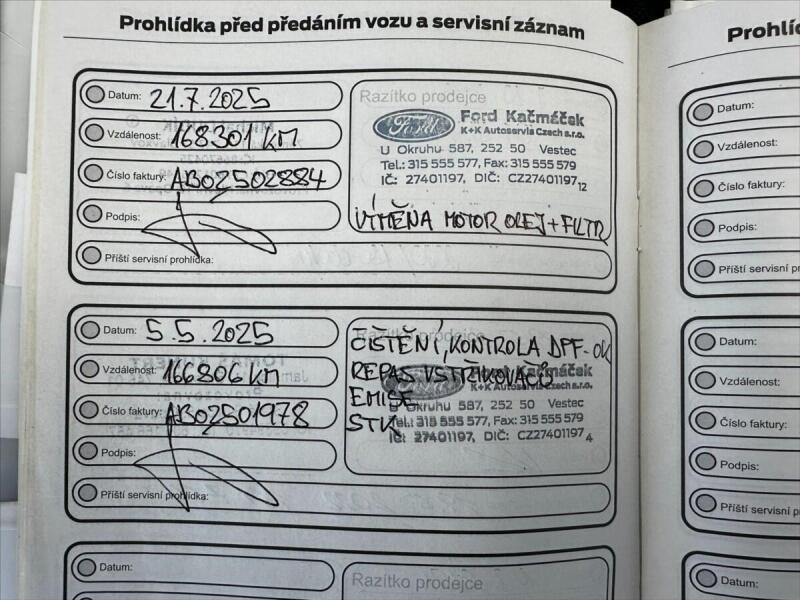 Prohlídka před předáním vozu a servisní záznam
Datum: 21.7.2025
Vzdálenost: 168301 KM
Číslo faktury: AB02502884
Podpis:
Příští servisní prohlídka:
Razítko prodejce
Ford
Ford Kačmáček
K+K Autoservis Czech s.r.o.
U Okruhu 587, 252 50 Vestec
Tel.: 315 555 577, Fax: 315 555 579
IČ: 27401197, DIČ: CZ27401197
12
VÝMĚNA MOTOR OLEJ + FILTR
Datum: 5.5.2025
Vzdálenost: 166806 KM
Číslo faktury: AB02501978
Podpis:
Příští servisní prohlídka:
Razítko prodejce
ČIŠTĚNÍ, KONTROLA DPF-OK
REPAS VSTŘIKOVAČŮ
EMISE
STK
Kačmáček
K+K Autoservis Czech s.r.o.
U Okruhu 587, 252 50 Vestec
Tel.: 315 555 577, Fax: 315 555 579
IČ: 27401197, DIČ: CZ27401197
4
Datum:
Razítko prodejce
Vzdálenost:
Datum:
Vzdálenost:
Číslo faktury:
Podpis:
Příští servisní
Datum:
Vzdálenost:
Číslo faktury:
Podpis:
Příští servisní
Datum: